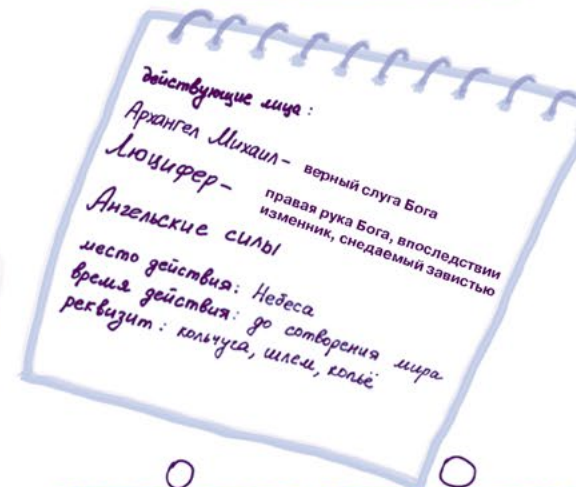 действующие лица:
Архангел Михаил - верный слуга Бога
Люцифер - правая рука Бога, впоследствии
изменник, снедаемый завистью
Ангельские силы
место действия: Небеса
время действия: до сотворения мира
реквизит: кольчуга, шлем, копьё